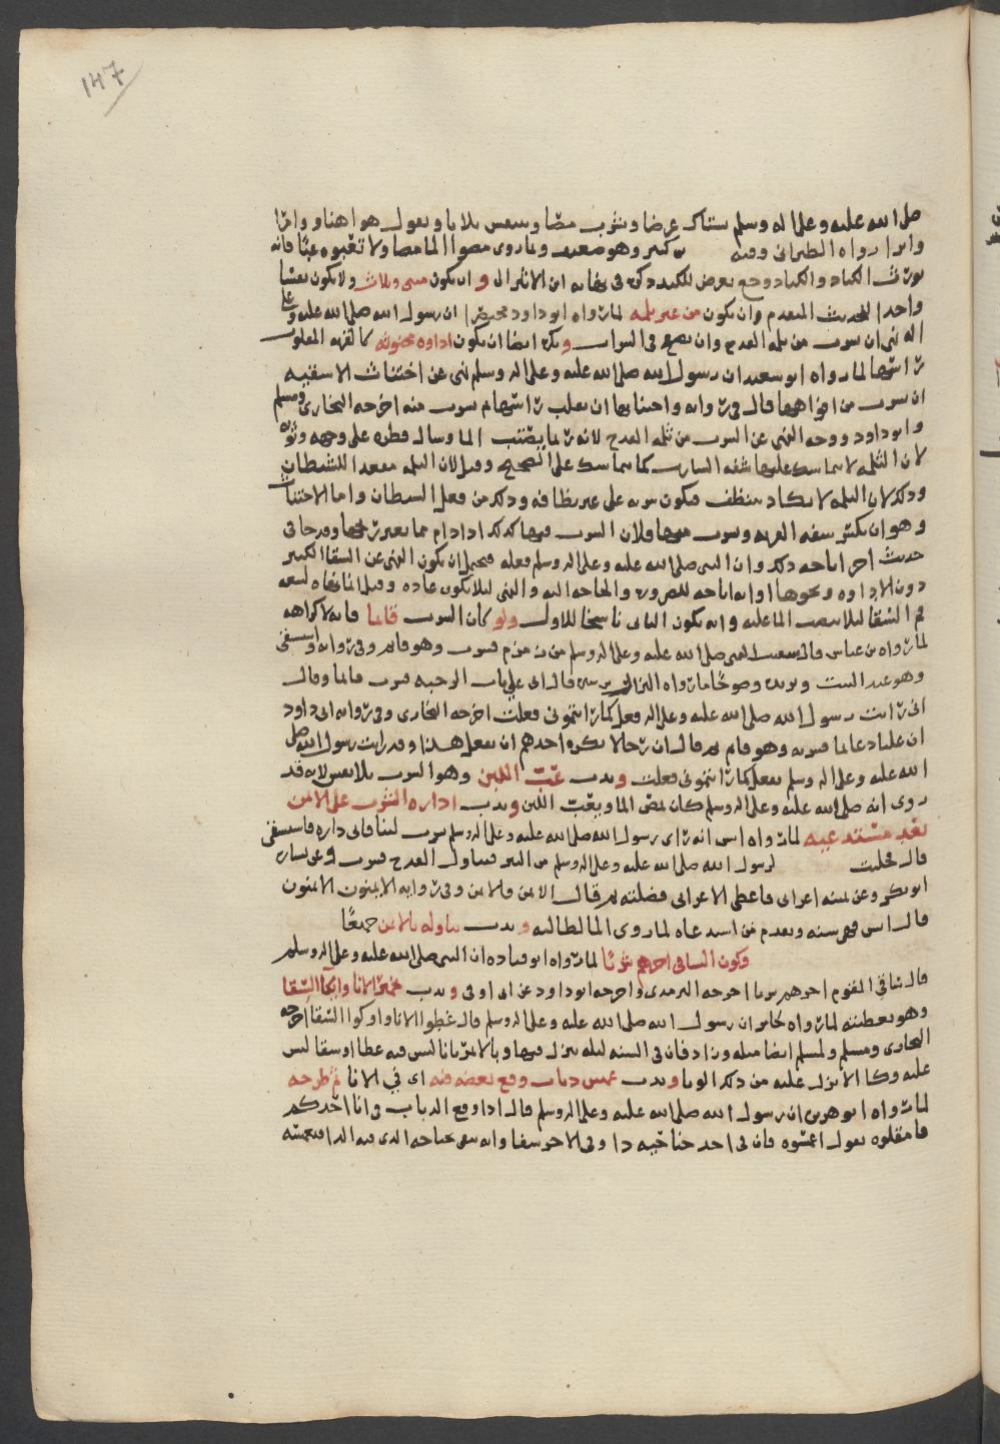 ١٤٧
صلى الله عليه وعلى اله وسلم يستاك عرضا ويشرب مصا ويتنفس ثلاثا ويقول هو اهنا وامرا
وابرا رواه الطبراني وفيه بن كثير وهو ضعيف ولما روي مصوا الما مصا ولا تعبوه عبا فانه
يورث الكباد والكباد وجع يعرض للكبد ذكره في نهايه ابن الاثير و ان يكون مثنى وثلاث ولا يكون نفسا
واحدا للحديث المتقدم وان يكون من غير ثلمه لما رواه ابو داود ان رسول الله صلى الله عليه وعلى
اله نهى ان يشرب من ثلمه القدح وان ينفخ في الشراب ويكره ايضا ان يكون اداوه مخنوثه كالقربه المقلوب
راسها لما رواه ابو سعيد ان رسول الله صلى الله عليه وعلى اله وسلم نهى عن اختناث الاسقيه
ان يشرب من افواهها قال في روايه واختناثها ان يقلب راسها ثم يشرب منه اخرجه البخاري ومسلم
وابو داود ووجه النهي عن الشرب من ثلمه القدح لانه ربما ينصب الما وسال قطره على وجهه وثوبه
لان الثلمه لا يتماسك عليها شفه الشارب كما يتماسك على الصحيح وقيل لان الثلمه مقعد الشيطان
وذلك لان الثلمه لا يكاد ينظف فيكون شربه على غير نظافه وذلك من فعل الشيطان واما الاختناث
وهو ان يكسر شفه القربه ويشرب منها فلان الشرب فيها كذلك اذا دام مما يغير ريحها وقد جا في
حديث اخر اباحه ذلك وان النبي صلى الله عليه وعلى اله وسلم فعله فيحتمل ان يكون النهي عن السقا الكبير
دون الاداوه ونحوها او انه اباحه للضروره والحاجه اليه والنهي لئلا يكون عاده وقيل انما نهاه لسعه
فم السقا لئلا ينصب الما عليه وانه يكون الثاني ناسخا للاول ولو كان الشرب قائما فانه لا كراهه
لما رواه بن عباس قال سقيت النبي صلى الله عليه وعلى اله وسلم من زمزم فشرب وهو قائم وفي روايه واستسقى
وهو عند البيت ويؤيده وضوحا ما رواه النزال بن سبره قال اتي علي باب الرحبه فشرب قائما وقال
اني رايت رسول الله صلى الله عليه وعلى اله فعل كما رايتموني فعلت اخرجه البخاري وفي روايه ابي داود
ان عليا دعا بما فشربه وهو قائم ثم قال ان رجالا يكره احدهم ان يفعل هذا وقد رايت رسول الله صلى
الله عليه وعلى اله وسلم يفعل كما رايتموني فعلت وندب عب اللبن وهو الشرب بلا نفس لانه قد
روي انه صلى الله عليه وعلى اله وسلم كان يمص الما ويعب اللبن وندب اداره الشرب على الايمن
بعد مستدعيه لما رواه انس انه راى رسول الله صلى الله عليه وعلى اله وسلم شرب لبنا فاتى داره فاستسقى
قال فحلبت لرسول الله صلى الله عليه وعلى اله وسلم من البير فتناول القدح فشرب وعن يساره
ابو بكر وعن يمينه اعرابي فاعطى الاعرابي فضلته ثم قال الايمن فالايمن وفي روايه الايمنون الايمنون
قال انس فهي سنه ويقدم من استدعاه لما روي الما لطالبه وندب تناوله بالايمن جميعا
وكون الساقي اخرهم شربا لما رواه ابو قتاده ان النبي صلى الله عليه وعلى اله وسلم
قال ساقي القوم اخرهم شربا اخرجه الترمذي واخرجه ابو داود عن ابي اوفى وندب تخمير الانا وايكا السقا
وهو تغطيته لما رواه جابر ان رسول الله صلى الله عليه وعلى اله وسلم قال غطوا الانا واوكوا السقا اخرجه
البخاري ومسلم ولمسلم ايضا مثله وزاد فان في السنه ليله ينزل فيها وبا لا يمر بانا ليس فيه غطا او سقا ليس
عليه وكا الا نزل عليه من ذلك الوبا وندب غمس ذباب وقع بعضه فيه اي في الانا ثم طرحه
لما رواه ابو هريره ان رسول الله صلى الله عليه وعلى اله وسلم قال اذا وقع الذباب في انا احدكم
فامقلوه يقول اغمسوه فان في احد جناحيه دا وفي الاخر شفا وانه يتقي بجناحه الذي فيه الدا فليغمسه